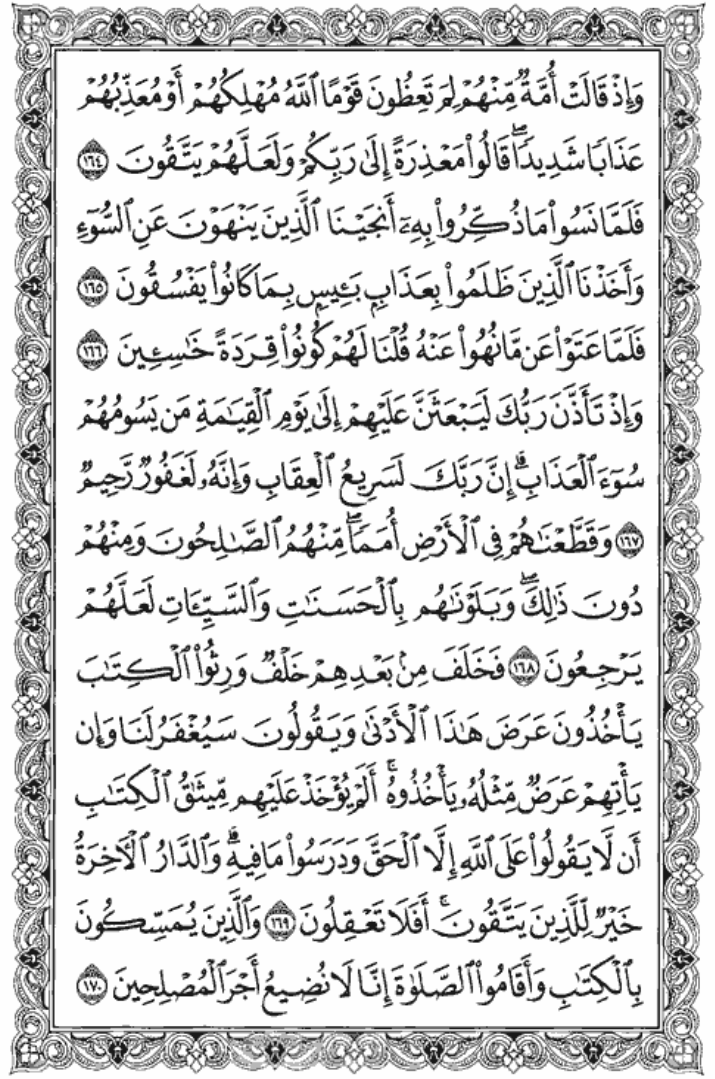 وَإِذْ قَالَتْ أُمَّةٌ مِّنْهُمْ لِمَ تَعِظُونَ قَوْمًا ٱللَّهُ مُهْلِكُهُمْ أَوْ مُعَذِّبُهُمْ
عَذَابًا شَدِيدًا ۖ قَالُوا۟ مَعْذِرَةً إِلَىٰ رَبِّكُمْ وَلَعَلَّهُمْ يَتَّقُونَ ١٦٤
فَلَمَّا نَسُوا۟ مَا ذُكِّرُوا۟ بِهِۦٓ أَنجَيْنَا ٱلَّذِينَ يَنْهَوْنَ عَنِ ٱلسُّوٓءِ
وَأَخَذْنَا ٱلَّذِينَ ظَلَمُوا۟ بِعَذَابٍۭ بَـِٔيسٍۭ بِمَا كَانُوا۟ يَفْسُقُونَ ١٦٥
فَلَمَّا عَتَوْا۟ عَن مَّا نُهُوا۟ عَنْهُ قُلْنَا لَهُمْ كُونُوا۟ قِرَدَةً خَـٰسِـِٔينَ ١٦٦
وَإِذْ تَأَذَّنَ رَبُّكَ لَيَبْعَثَنَّ عَلَيْهِمْ إِلَىٰ يَوْمِ ٱلْقِيَـٰمَةِ مَن يَسُومُهُمْ
سُوٓءَ ٱلْعَذَابِ ۗ إِنَّ رَبَّكَ لَسَرِيعُ ٱلْعِقَابِ ۖ وَإِنَّهُۥ لَغَفُورٌ رَّحِيمٌ
١٦٧ وَقَطَّعْنَـٰهُمْ فِى ٱلْأَرْضِ أُمَمًا ۖ مِّنْهُمُ ٱلصَّـٰلِحُونَ وَمِنْهُمْ
دُونَ ذَٰلِكَ ۖ وَبَلَوْنَـٰهُم بِٱلْحَسَنَـٰتِ وَٱلسَّيِّـَٔاتِ لَعَلَّهُمْ
يَرْجِعُونَ ١٦٨ فَخَلَفَ مِنۢ بَعْدِهِمْ خَلْفٌ وَرِثُوا۟ ٱلْكِتَـٰبَ
يَأْخُذُونَ عَرَضَ هَـٰذَا ٱلْأَدْنَىٰ وَيَقُولُونَ سَيُغْفَرُ لَنَا وَإِن
يَأْتِهِمْ عَرَضٌ مِّثْلُهُۥ يَأْخُذُوهُ ۚ أَلَمْ يُؤْخَذْ عَلَيْهِم مِّيثَـٰقُ ٱلْكِتَـٰبِ
أَن لَّا يَقُولُوا۟ عَلَى ٱللَّهِ إِلَّا ٱلْحَقَّ وَدَرَسُوا۟ مَا فِيهِ ۗ وَٱلدَّارُ ٱلْـَٔاخِرَةُ
خَيْرٌ لِّلَّذِينَ يَتَّقُونَ ۗ أَفَلَا تَعْقِلُونَ ١٦٩ وَٱلَّذِينَ يُمَسِّكُونَ
بِٱلْكِتَـٰبِ وَأَقَامُوا۟ ٱلصَّلَوٰةَ إِنَّا لَا نُضِيعُ أَجْرَ ٱلْمُصْلِحِينَ ١٧٠